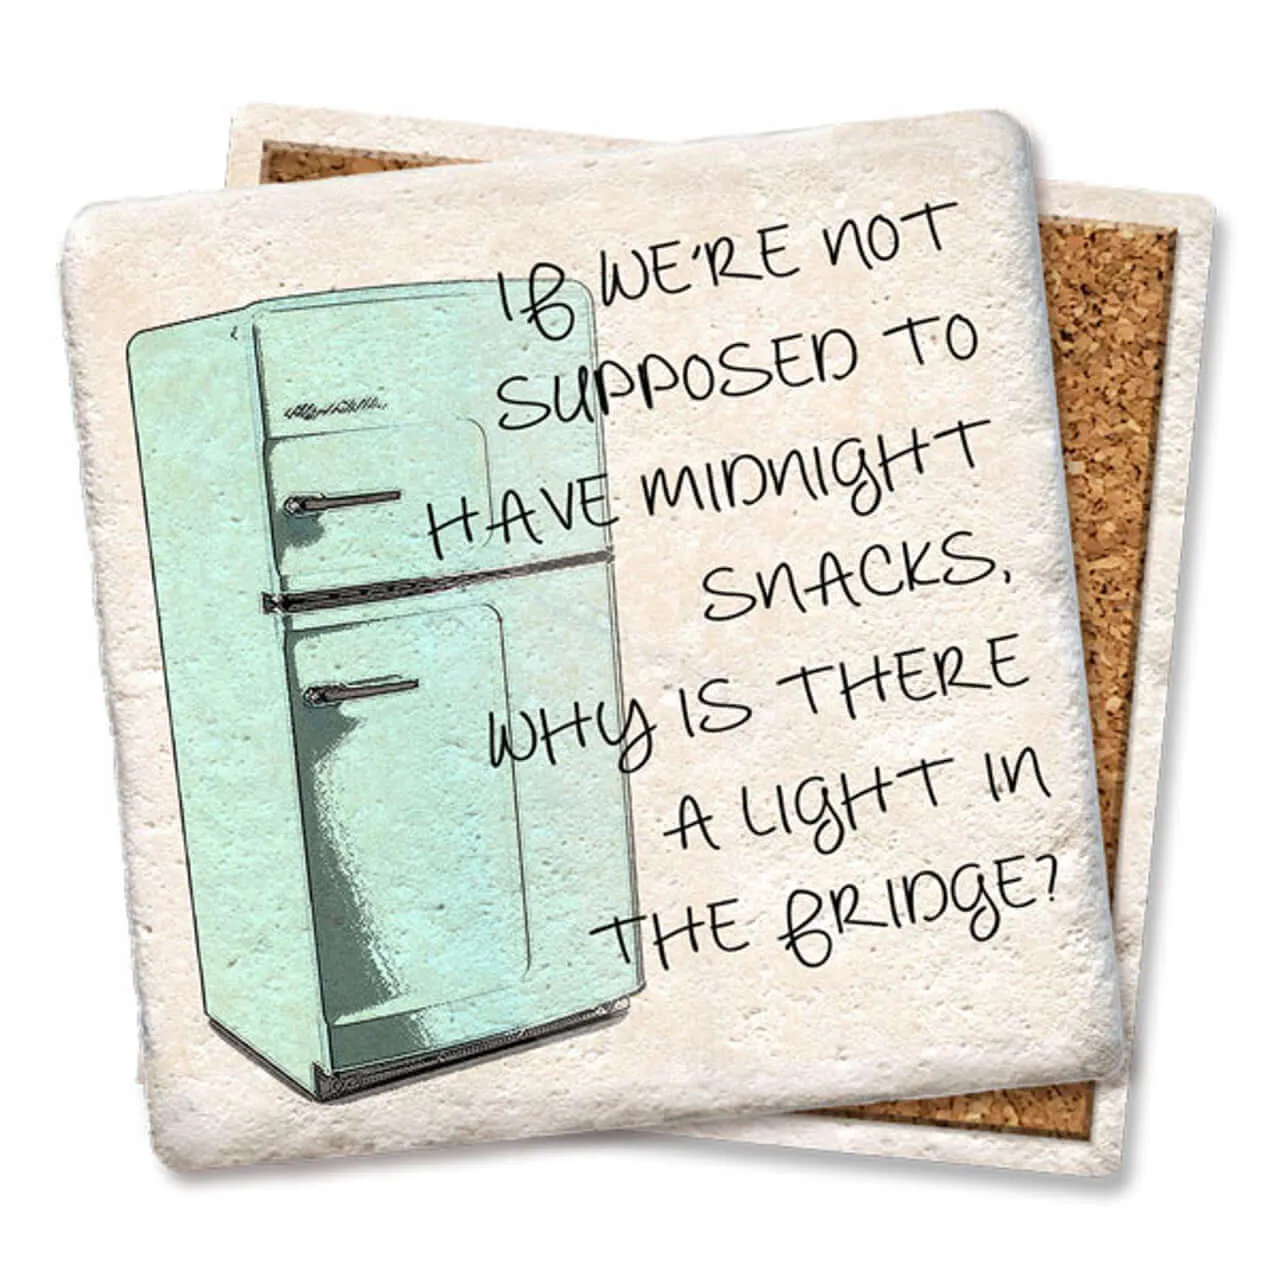 IF WE'RE NOT
SUPPOSED TO
HAVE MIDNIGHT
SNACKS,
WHY IS THERE
A LIGHT IN
THE FRIDGE?